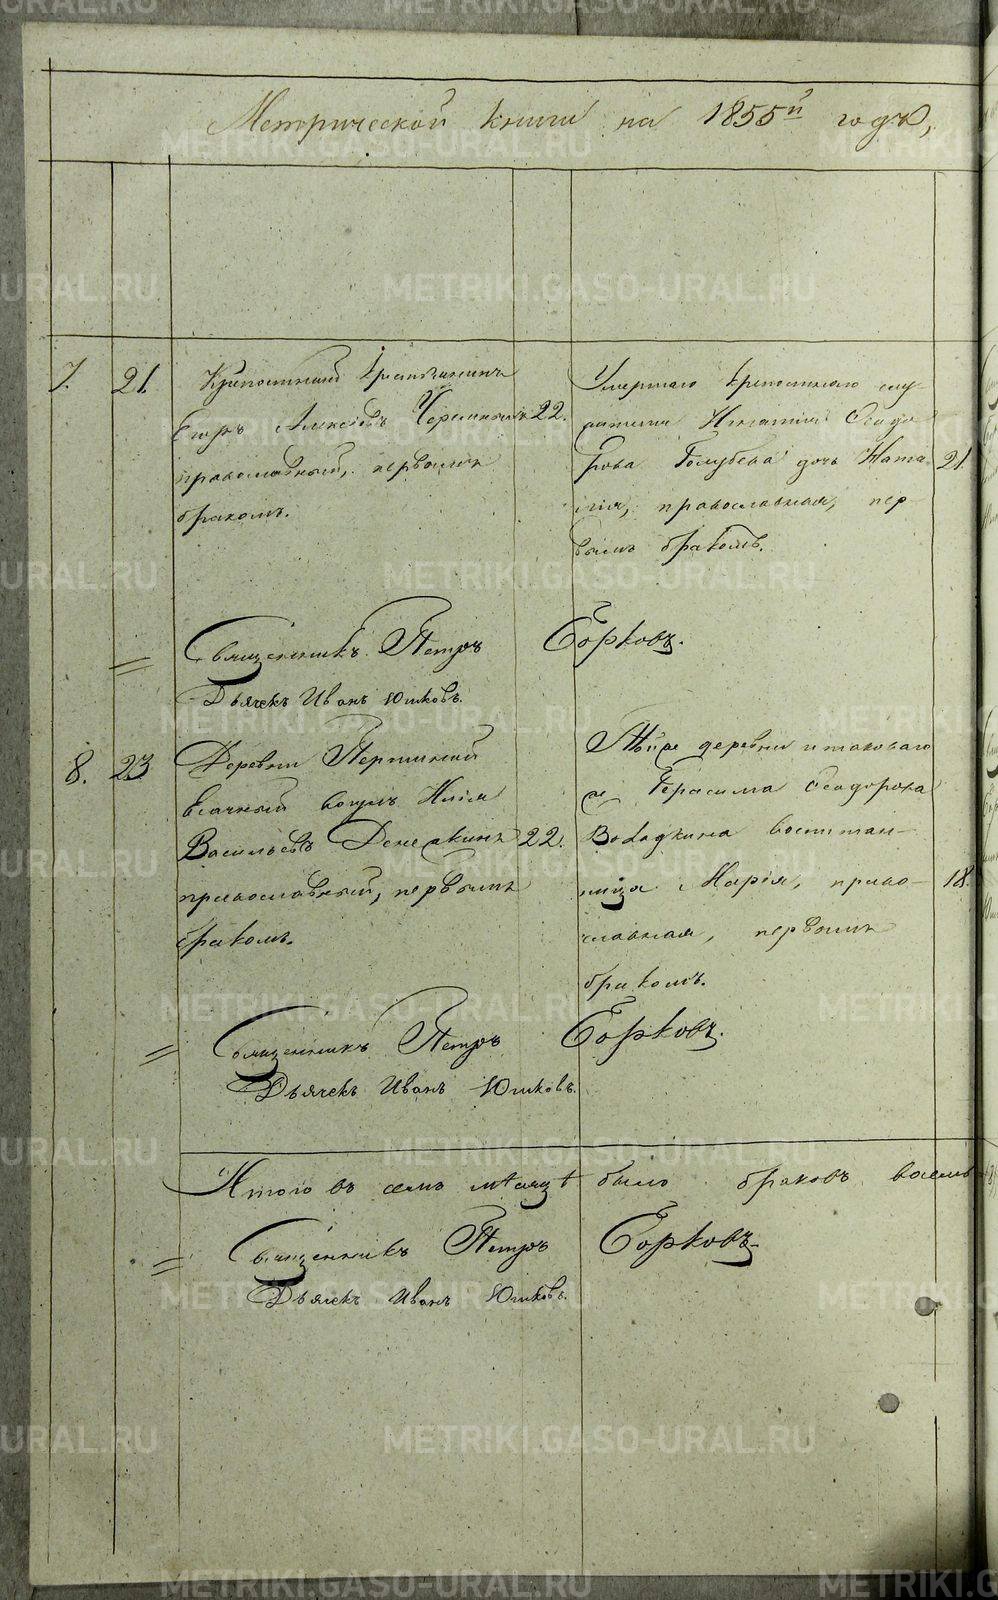 Метрической книги на 1855й годъ,
7. 21. Крепостный крестьянинъ
Егоръ Алексѣевъ 22.
православный, первымъ
бракомъ.
Умершаго крепостнаго слу
жителя Игнатія Ѳеодо
рова Голубева дочь Ната- 21.
лія, православная, пер-
вымъ бракомъ.
Священникъ Петръ Горковъ.
Дьячекъ Иванъ Юшковъ.
8. 23 Деревни
Васильевъ 22.
православный, первымъ
бракомъ.
Той же деревни и таковаго
же Герасима Ѳеодорова
воспитан-
ница Марія, право- 18.
славная, первымъ
бракомъ.
Священникъ Петръ Горковъ.
Дьячекъ Иванъ Юшковъ.
Итого въ семъ мѣсяцѣ было браковъ восемь
Священникъ Петръ Горковъ.
Дьячекъ Иванъ Юшковъ.
METRIKI.GASO-URAL.RU